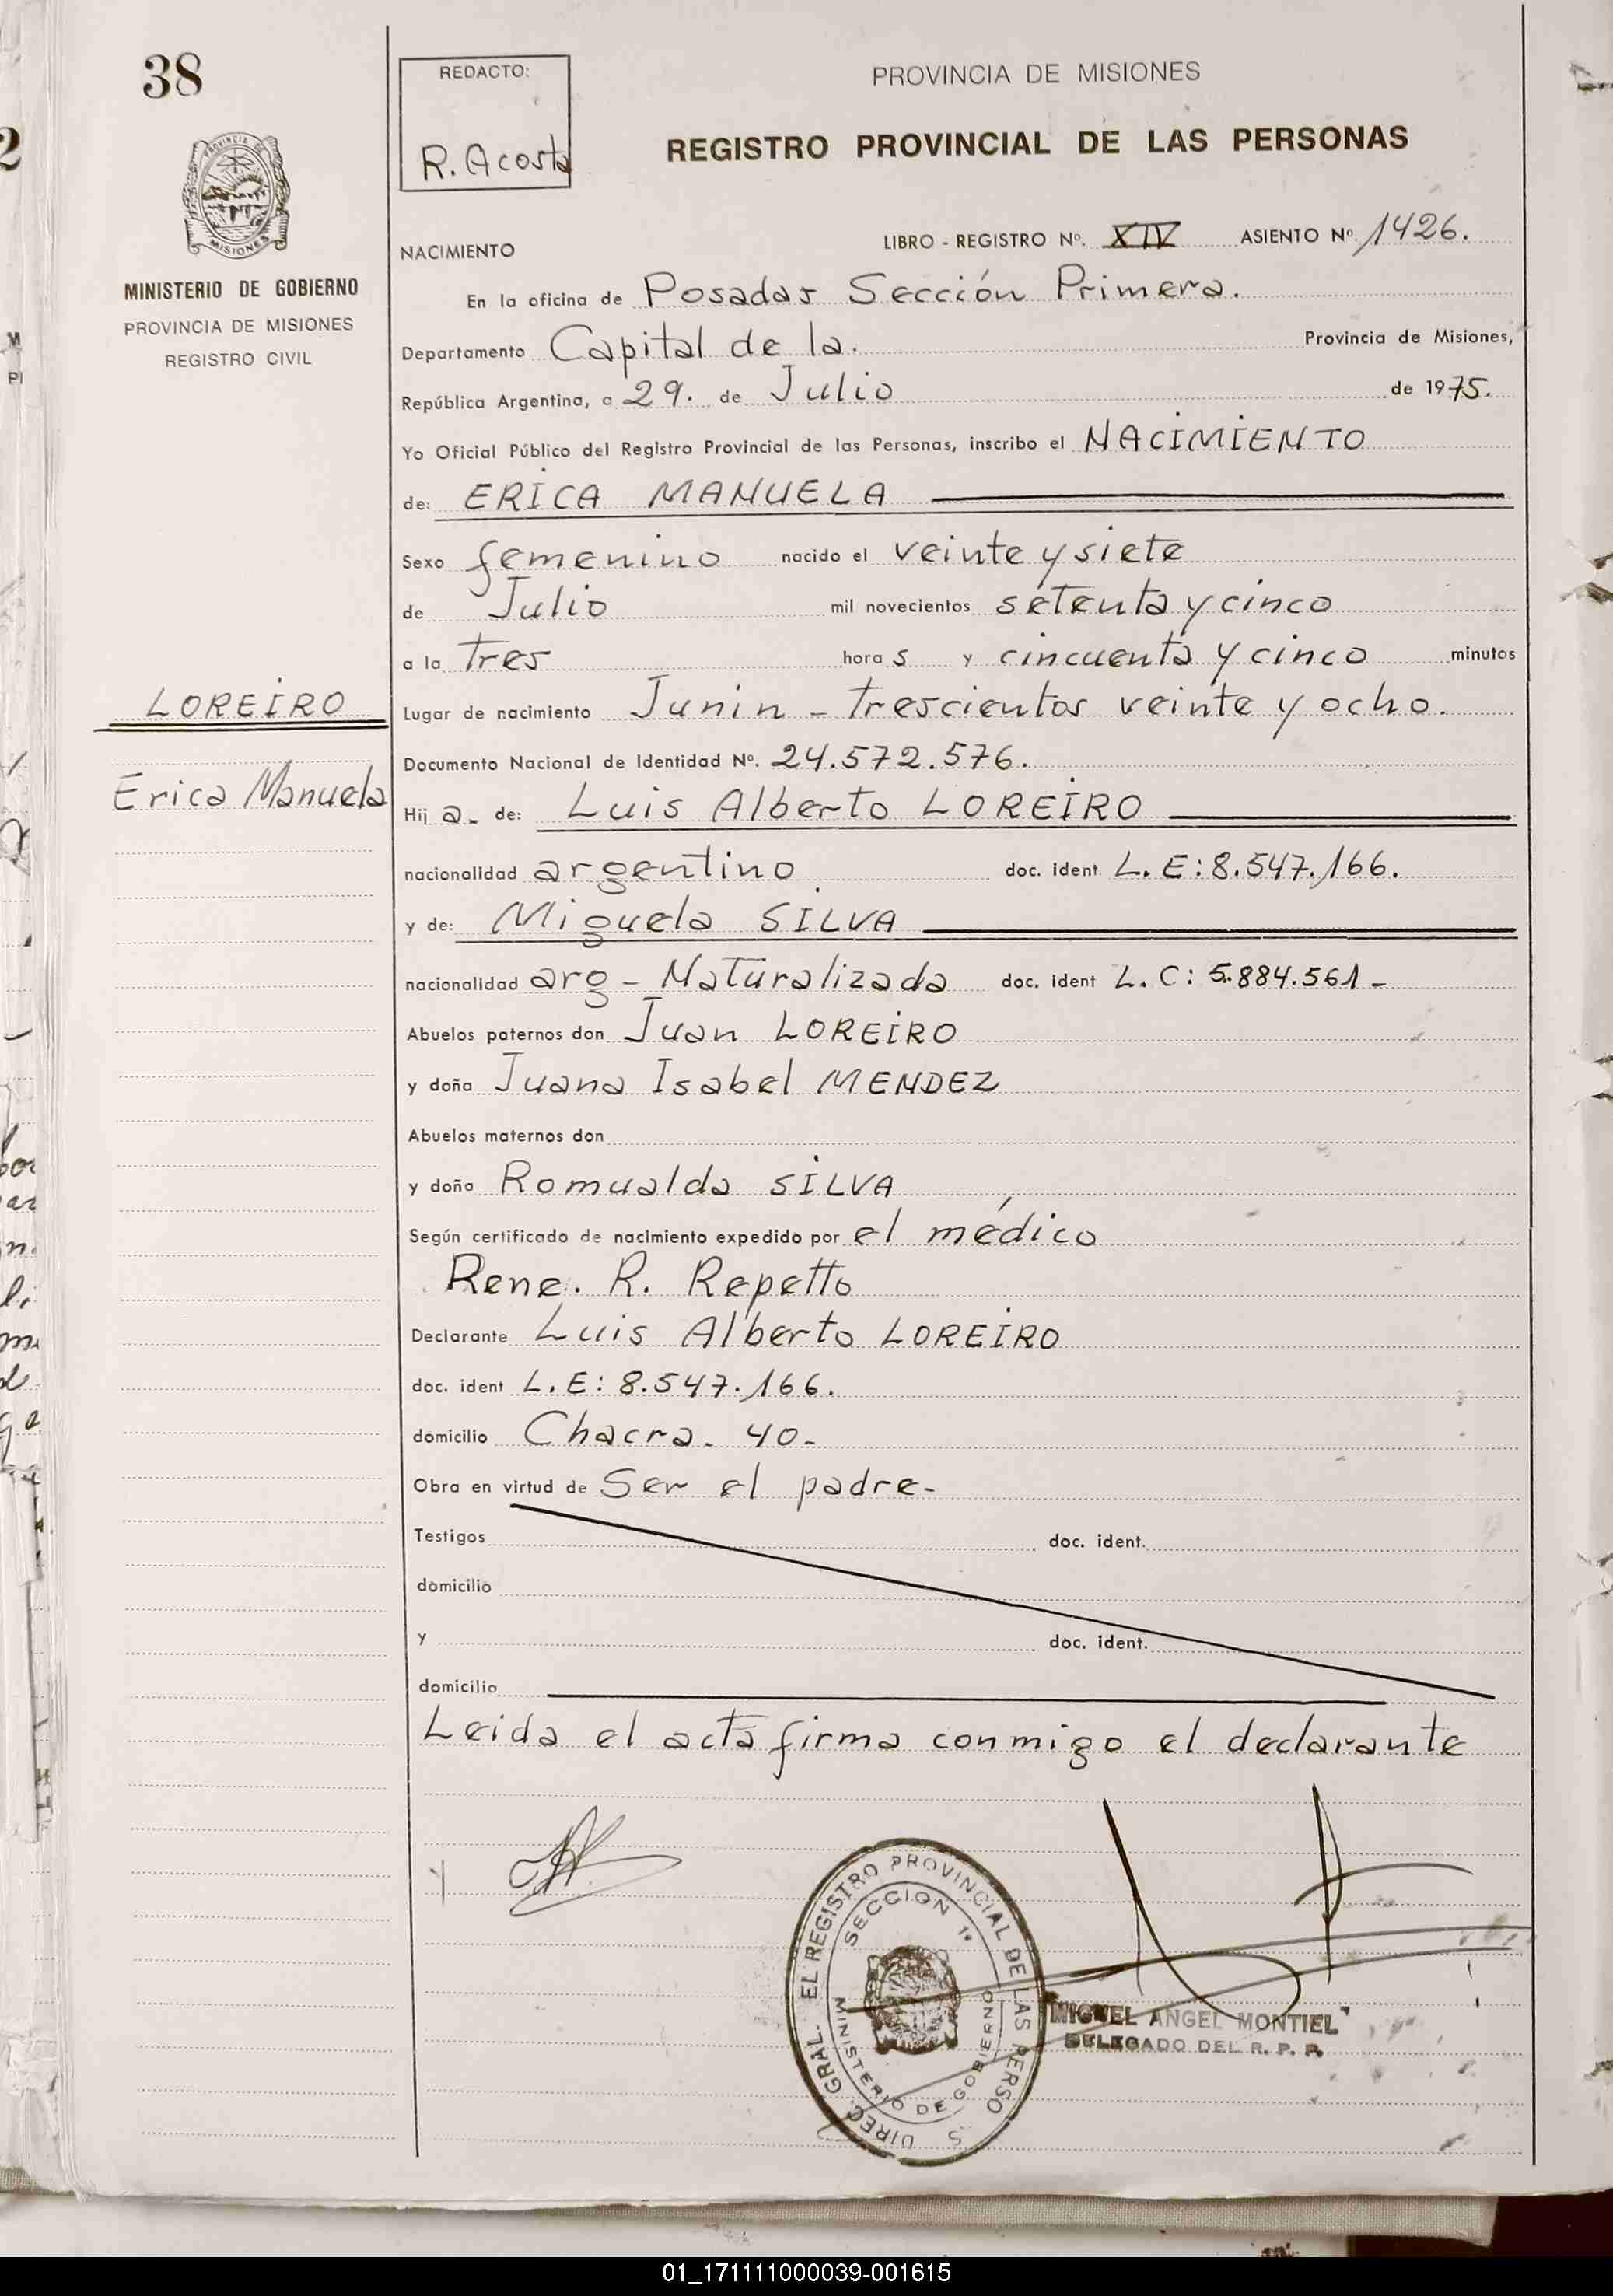 38
REDACTO:
R. Acosta
PROVINCIA DE MISIONES
REGISTRO PROVINCIAL DE LAS PERSONAS
PROVINCIA DE
MISIONES
MINISTERIO DE GOBIERNO
PROVINCIA DE MISIONES
REGISTRO CIVIL
NACIMIENTO
LIBRO - REGISTRO Nº. XIV ASIENTO Nº. 1426.
En la oficina de Posadas Sección Primera.
Departamento Capital de la. Provincia de Misiones,
República Argentina, a 29. de Julio de 1975.
Yo Oficial Público del Registro Provincial de las Personas, inscribo el NACIMIENTO
de: ERICA MANUELA
Sexo femenino nacido el veinte y siete
de Julio mil novecientos setenta y cinco
a la tres hora s y cincuenta y cinco minutos
LOREIRO
Lugar de nacimiento Junin - trescientos veinte y ocho.
Documento Nacional de Identidad Nº. 24.572.576.
Erica Manuela
Hij a- de: Luis Alberto LOREIRO
nacionalidad argentino doc. ident L. E: 8.547.166.
y de: Miguela SILVA
nacionalidad arg - Naturalizada doc. ident L. C: 5.884.561-
Abuelos paternos don Juan LOREIRO
y doña Juana Isabel MENDEZ
Abuelos maternos don
y doña Romualda SILVA
Según certificado de nacimiento expedido por el médico
Rene. R. Repetto
Declarante Luis Alberto LOREIRO
doc. ident L. E: 8.547.166.
domicilio Chacra. 40-
Obra en virtud de Ser el padre-
Testigos doc. ident.
domicilio
y doc. ident.
domicilio
Leida el acta firma conmigo el declarante
DIREC. GRAL. EL REGISTRO PROVINCIAL DE LAS PERSO S
SECCION 1ª
MINISTERIO DE GOBIERNO
MIGUEL ANGEL MONTIEL
DELEGADO DEL R. P. P.
01_171111000039-001615